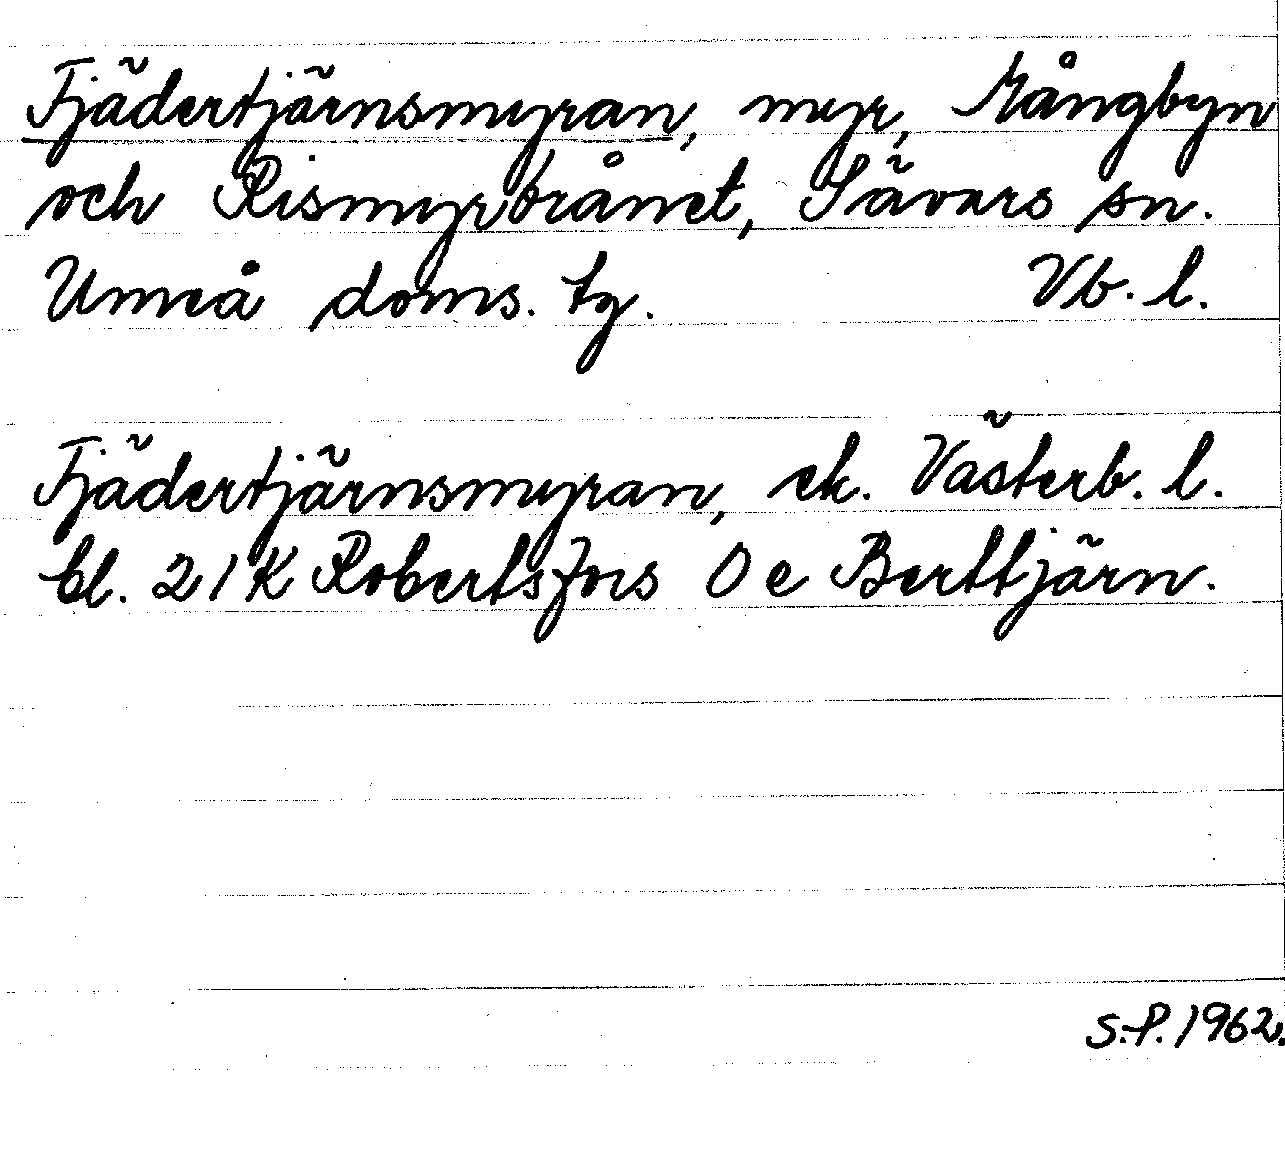 Fjädertjärnsmyran, myr, Mångbyn
och Rismyrbrånet, Sävars sn.
Umeå doms. tg. Vb. l.
Fjädertjärnsmyran, ek. Västerb. l.
bl. 21K Robertsfors O e Berttjärn.
S.P. 1962.